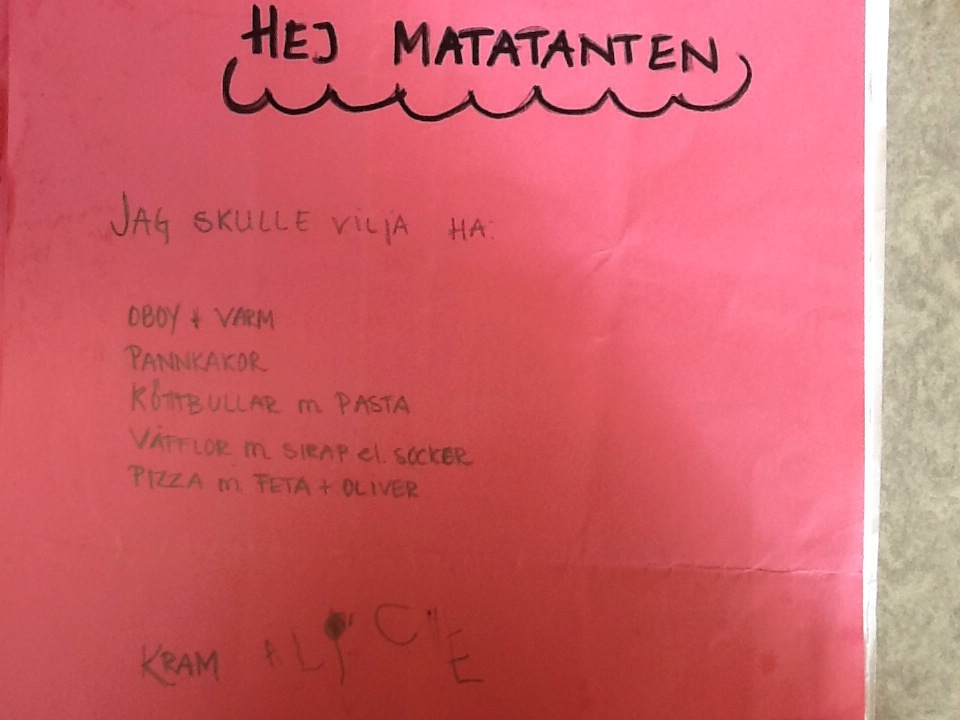 HEJ MATATANTEN
JAG SKULLE VILJA HA:
OBOY + VARM
PANNKAKOR
KÖTTBULLAR m. PASTA
VÅFFLOR m. SIRAP el. SOCKER
PIZZA m. FETA + OLIVER
KRAM